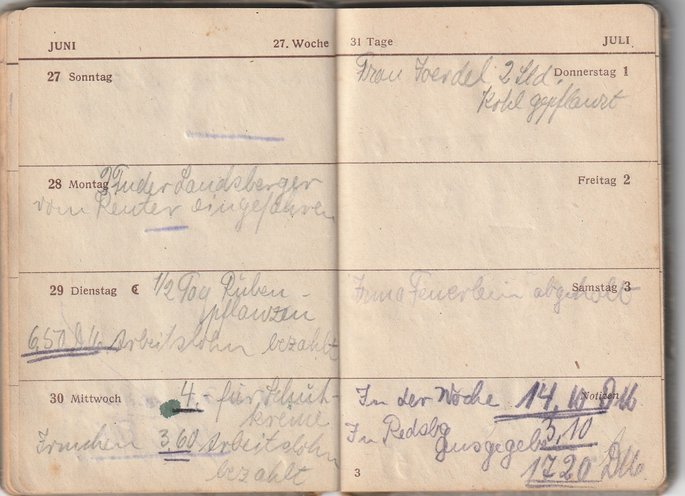 JUNI 27. Woche
27 Sonntag
28 Montag 2 Fuder Landsberger
vom Reuter eingefahren
29 Dienstag ☾ 1/2 Tag Rüben-
pflanzen
6,50 DM. Arbeitslohn bezahlt
30 Mittwoch 4. für
Irmchen 3,60 Arbeitslohn
bezahlt
31 Tage JULI
Frau 2 Std. Donnerstag 1
Kohl gepflanzt
Freitag 2
Irma Feuerlein abgeholt Samstag 3
Notizen
In der Woche 14,10 DM
In Redsbg 3,10
ausgegeb.
17.20 DM
3